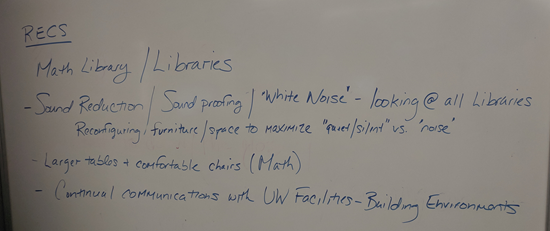 RECS
Math Library / Libraries
- Sound Reduction / Sound proofing / "White Noise" - looking @ all Libraries
Reconfiguring furniture/space to maximize "quiet/silent" vs. "noise"
- Larger tables + comfortable chairs (Math)
- Continual communications with UW Facilities - Building Environments